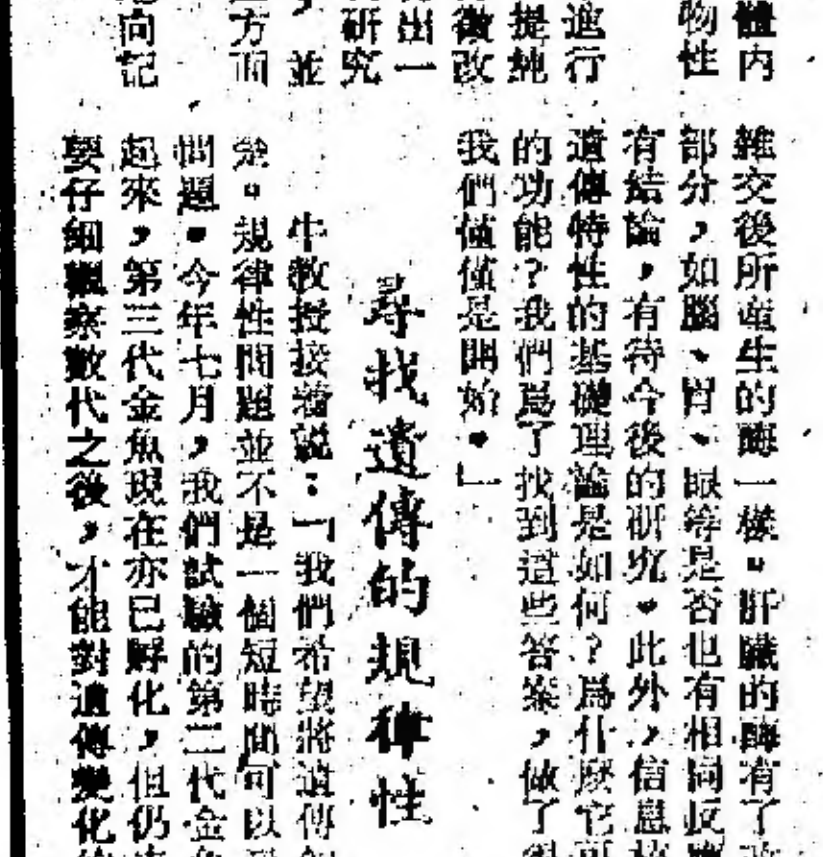 體內
物性
進行
提純
徵改
出一
研究
，並
方面
向記
雜交後所產生的酶一樣。肝臟的酶有了
部分，如腦、胃、眼等是否也有相同反應
有結論，有待今後的研究。此外，信息核
遺傳特性的基礎理論是如何？爲什麼它可
的功能？我們爲了找到這些答案，做了很
我們僅僅是開始。」
尋找遺傳的規律性
牛教授接着說：「我們希望將遺傳
楚。規律性問題並不是一個短時間可以
問題。今年七月，我們試驗的第二代金魚
起來，第三代金魚現在亦已孵化，但仍
要仔細觀察數代之後，才能對遺傳變化